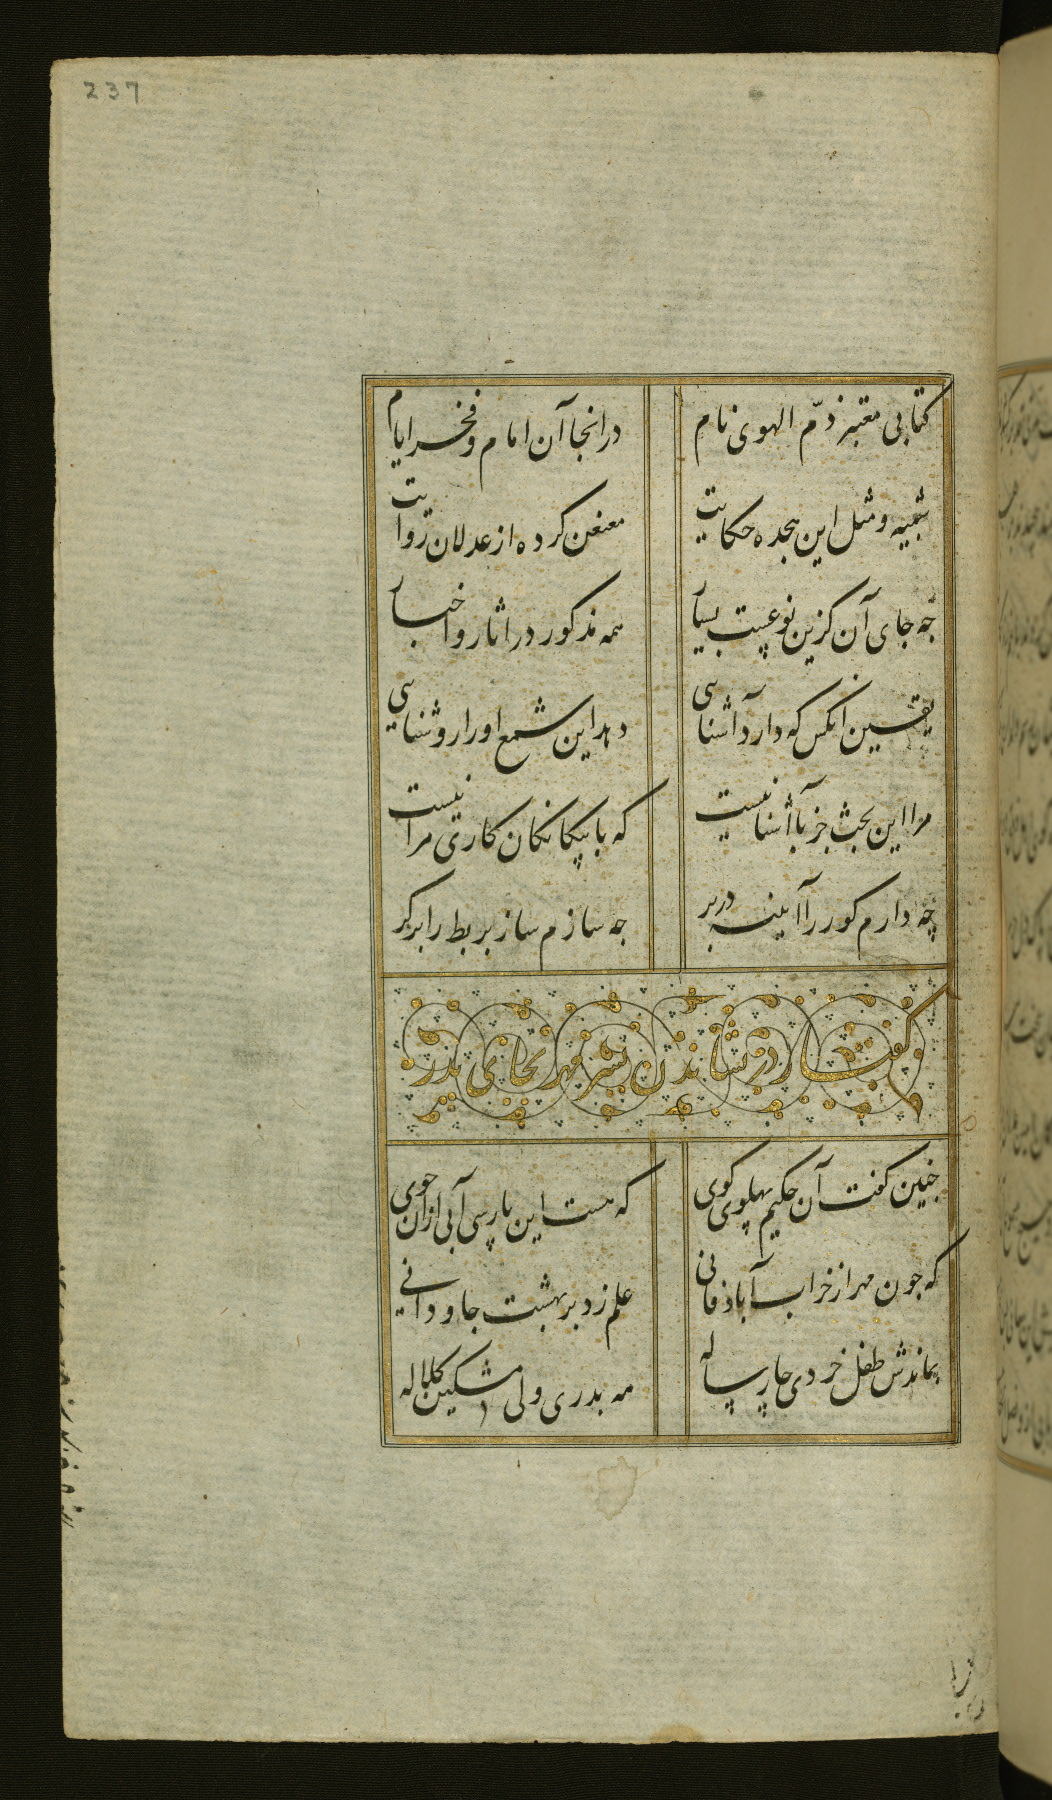 237
کتابی معتبر ذمّ الهوی نام
درانجا آن امام و فخر ایام
شبیه و مثل این هجده حکایت
معنعن کرده از عدلان روایت
جه جای آن کزین نوعیست بسیار
همه مذکور در اثار و اخبار
یقین انکس که دارد آشنایی
دهد این شمع او را روشنایی
مرا این بحث جز با آشنا نیست
که با بیکانکان کاری مرا نیست
چه دارم کور را آیینه در بر
جه سازم ساز بربط را بر کر
کفتار در نشاندن بشر مهر بجای پدر
جنین کفت آن حکیم پهلوی کوی
که هست این پارسی آبی از ان جوی
که جون مهر از خراب آباد فانی
علم زد بر بهشت جاودانی
بماندش طفل خردی چارساله
مه بدری ولی مشکین کلاله